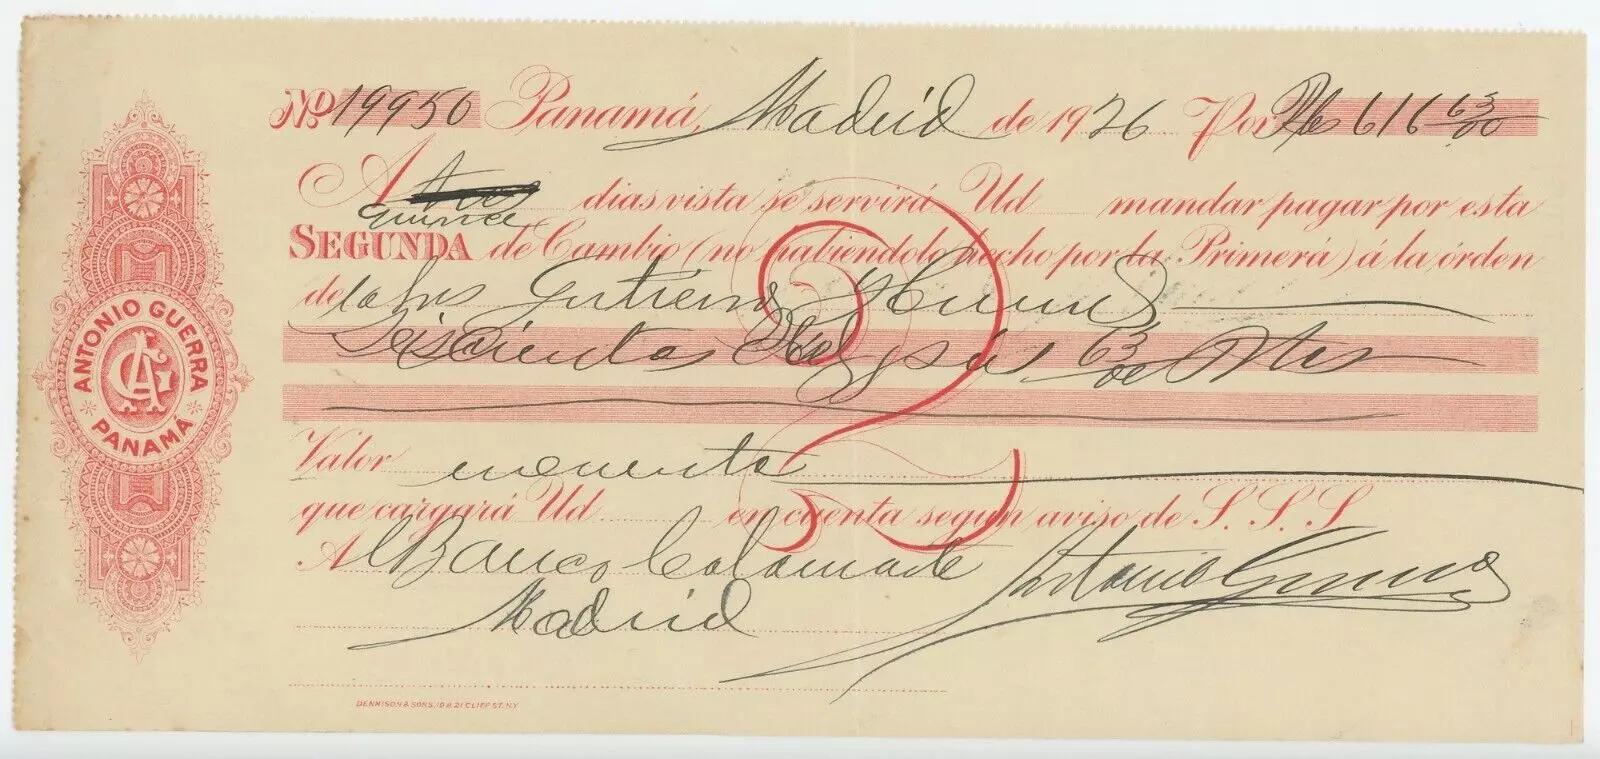 ANTONIO GUERRA
PANAMÁ
No 19950 Panamá, Madrid de 1926 Por Pts 616 63/00
A tres dias vista se servirá Ud mandar pagar por esta
quince
SEGUNDA de Cambio (no habiendolo hecho por la Primera) á la órden
de los Sres Gutierrez
Seiscientas 63/00 Ptas
Valor en cuenta
que cargará Ud en cuenta segun aviso de S. S. S.
A Banco Calamarte Antonio Guerra
Madrid
DENNISON & SONS, 19 & 21 CLIFF ST. N.Y.